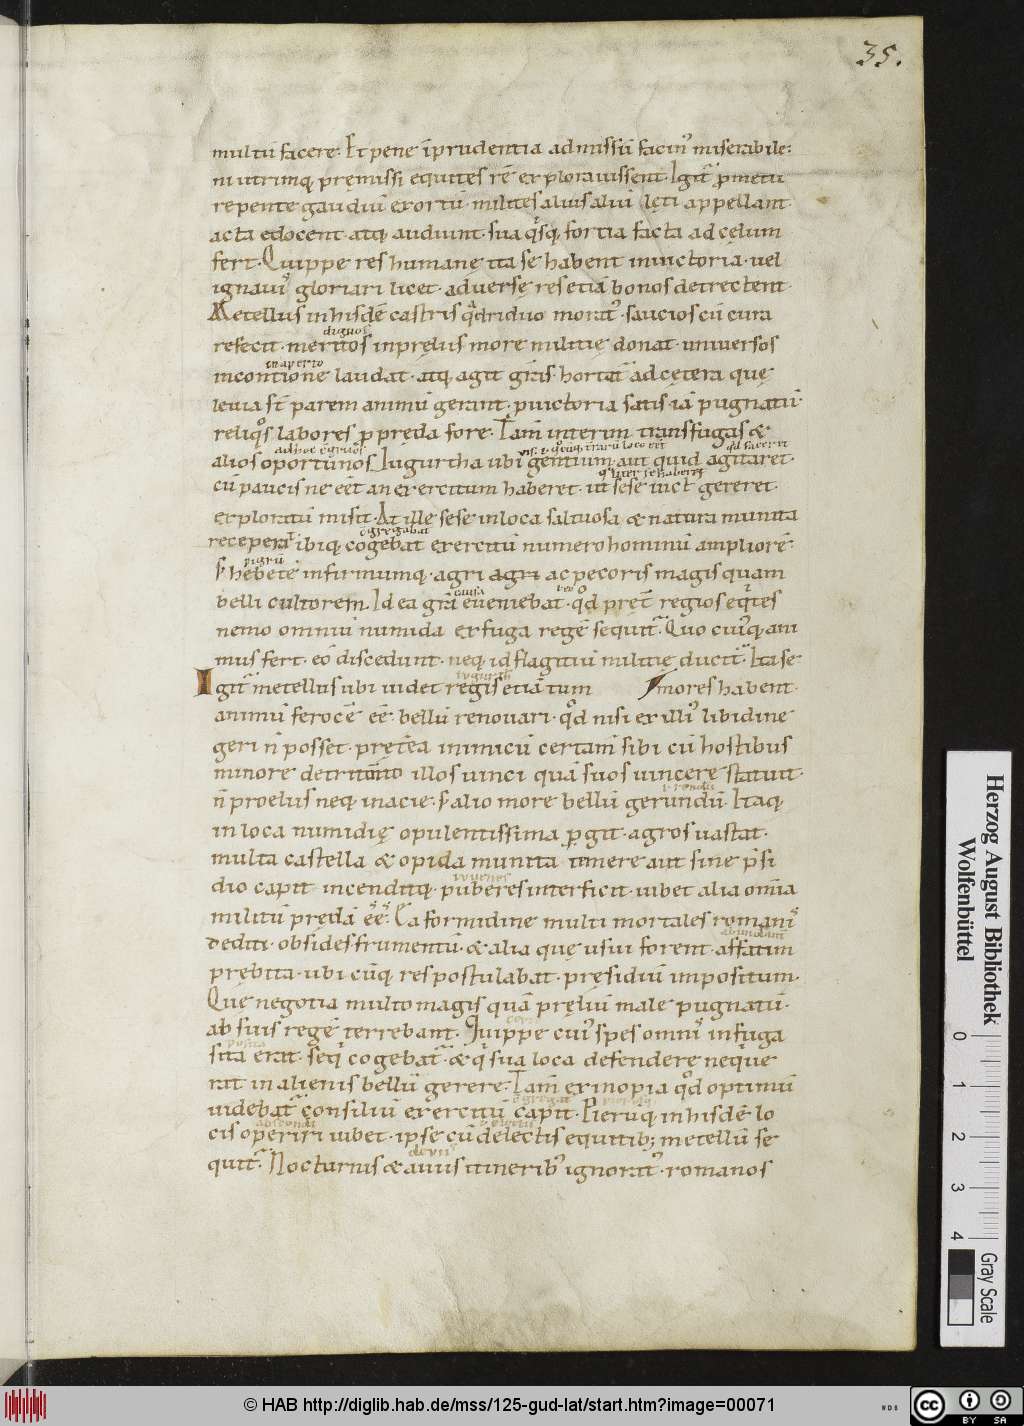 35.
multū facere: Et pene īprudentia admissū facin᾽ miserabile:
ni utrimq; pręmissi equites rē explorauissent. Igit᷑ ꝓmetu
repente gaudiū exortū. milites alius aliū lęti appellant.
acta edocent. atq; audiunt. sua qⁱsq; fortia facta ad cęlum
fert. Quippe res humanę ita se habent in uictoria. uel
ignauis gloriari licet. aduersę res etiā bonos detrectent.
Metellus in hisdē castris qᵃdriduo morat᾽. saucios cū cura
dignos
refecit. meritos in pręliis more militię donat. uniuersos
in aperto
in contione laudat. atq; agit grās. hortat̄ ad cętera quę
leuia st̄ parem animū gerant. p uictoria satis iā pugnatū.
reliqᵒs labores p pręda fore. Tam̄ interim transfugas &
alios oportunos Iugurtha ubi gentium. aut quid agitaret.
cū paucis ne eēt an exercitum haberet. ut sese uict᾽ gereret.
exploratū misit. At ille sese in loca saltuosa & natura munita
egregabat
receperat ibiq; cogebat exercitū numero hominū ampliorē:
pigrū
s; hebetē infirmumq;. agri agri ac pecoris magis quam
causa
belli cultorem. Id ea grā eueniebat. qᵒd pręt̄ regios eqⁱtes
nemo omniū numida ex fuga regē sequit᷑. Quo cui᾽q; ani
mus fert. eo discedunt. neq; id flagitiū militię ducit᷑. Ita se
iugurth
Igit᷑ metellus ubi uidet regis etiā tum mores habent.
animū ferocē eē. bellū renouari. qᵒd nisi ex illi᾽ libidine
geri n̄ posset. pręt̄ea inimicū certam̄ sibi cū hostibus
minore detrim̄to illos uinci quā suos uincere statuit.
n̄ proeliis neq; in acie. s; alio more bellū gerundū. Itaq;
in loca numidię opulentissima ꝑgit. agros uastat.
multa castella & opida munita temere aut sine p̄si
iuuenes
dio capit incenditq; puberes interficit. iubet alia om̄ia
militū prędā eē: Ea formidine multi mortales romanis
abundant
dediti. obsides frumentū. & alia quę usui forent. affatim
prębita. ubi cūq; res postulabat. pręsidiū impositum.
Quę negotia multo magis quā pręliū male pugnatū.
ab suis regē terrebant. Quippe cui᾽ spes omnis in fuga
posita
sita erat. seqⁱ cogebat᷑. & qⁱ sua loca defendere neque
rat in alienis bellū gerere: Tam̄ ex inopia qᵒd optimū
uidebat᷑ consiliū exercitū capit. Pleruq; in hisdē lo
cis operiri iubet. ipse cū delectis equitib; metellū se
deuiis
quit᷑. Nocturnis & auiis itinerib᾽ ignorat᾽. romanos
Herzog August Bibliothek
Wolfenbüttel
0 1 2 3 4
Gray Scale
© HAB http://diglib.hab.de/mss/125-gud-lat/start.htm?image=00071
cc BY SA